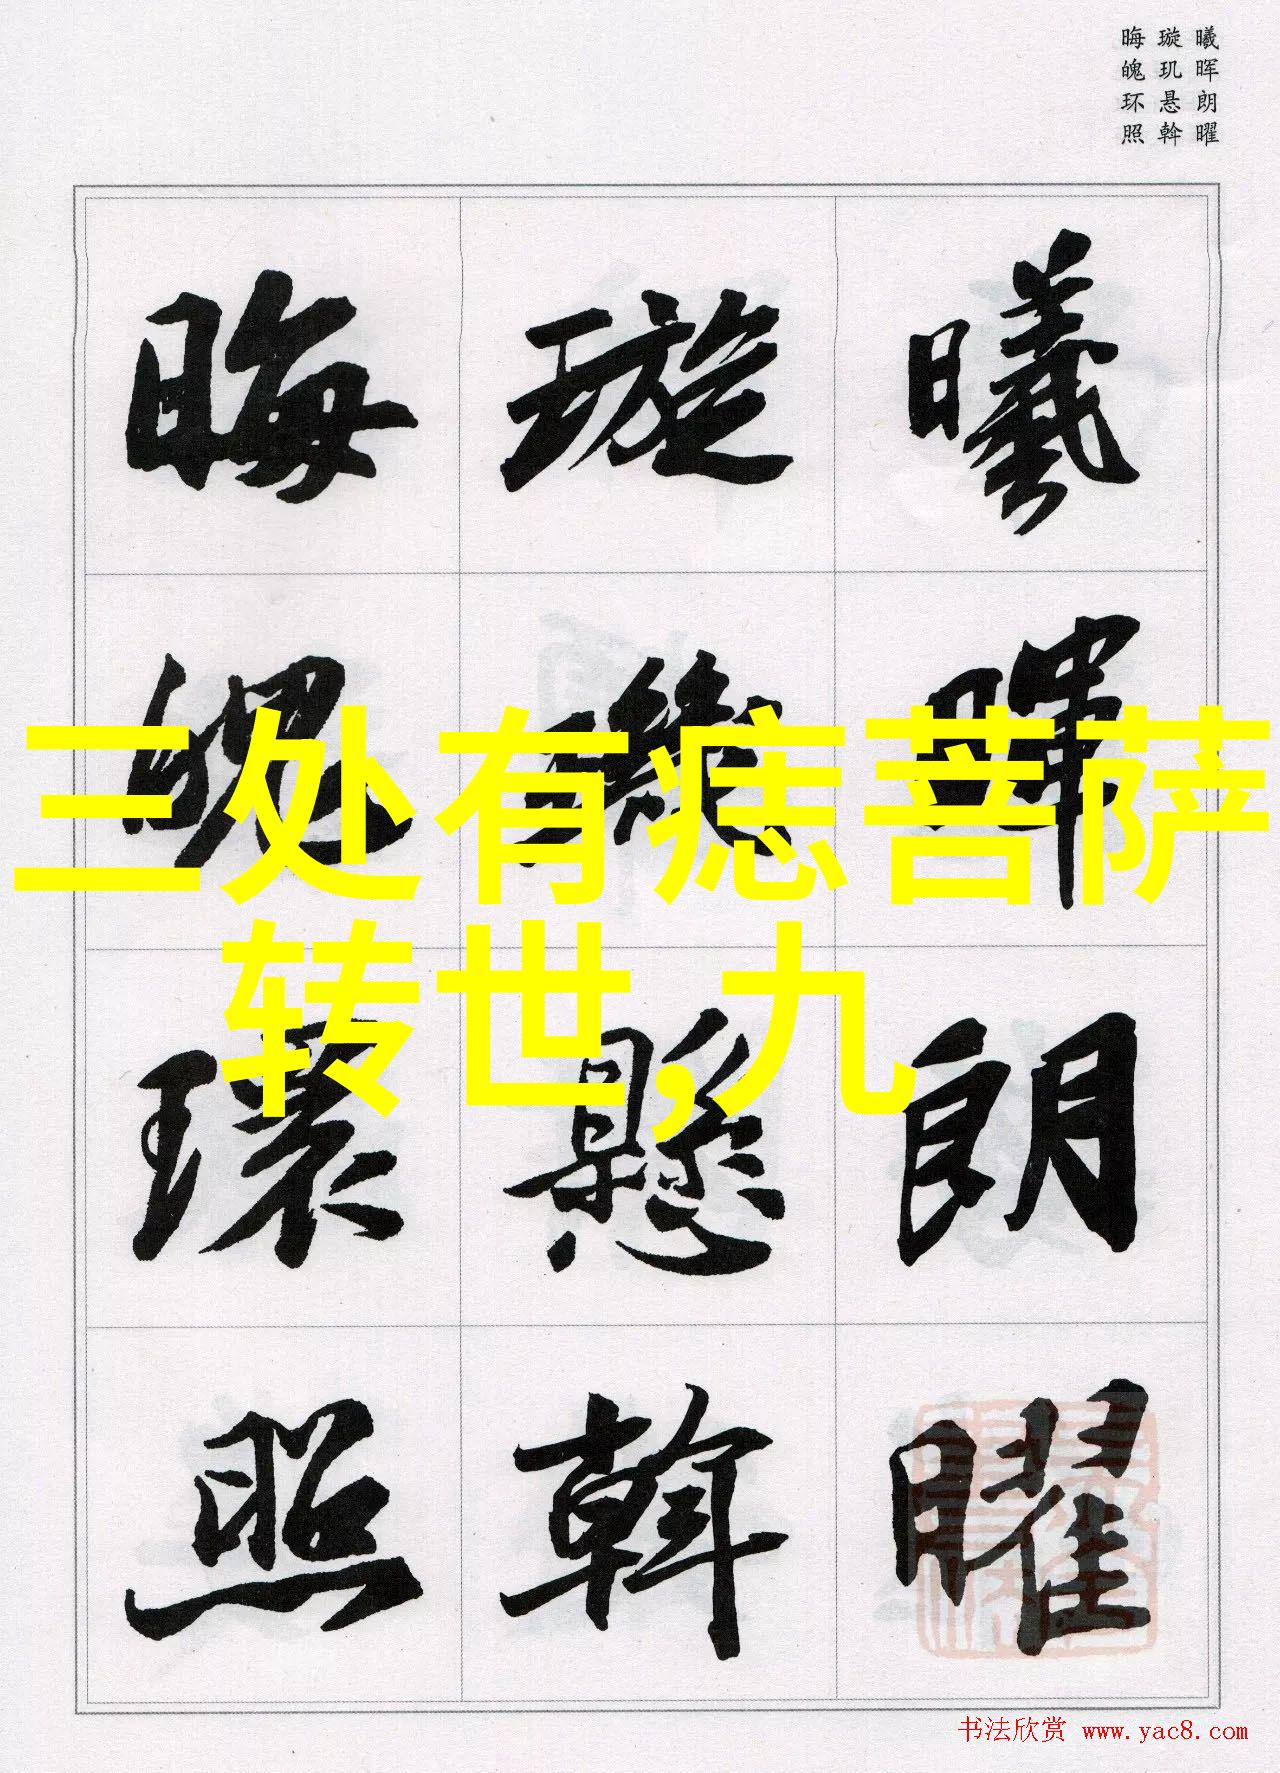 曦晖朗曜
璇玑悬斡
晦魄环照
曦暉朗曜
璇璣懸斡
晦魄環照
三处有痣菩萨
转世,九
书法欣赏 www.yac8.com